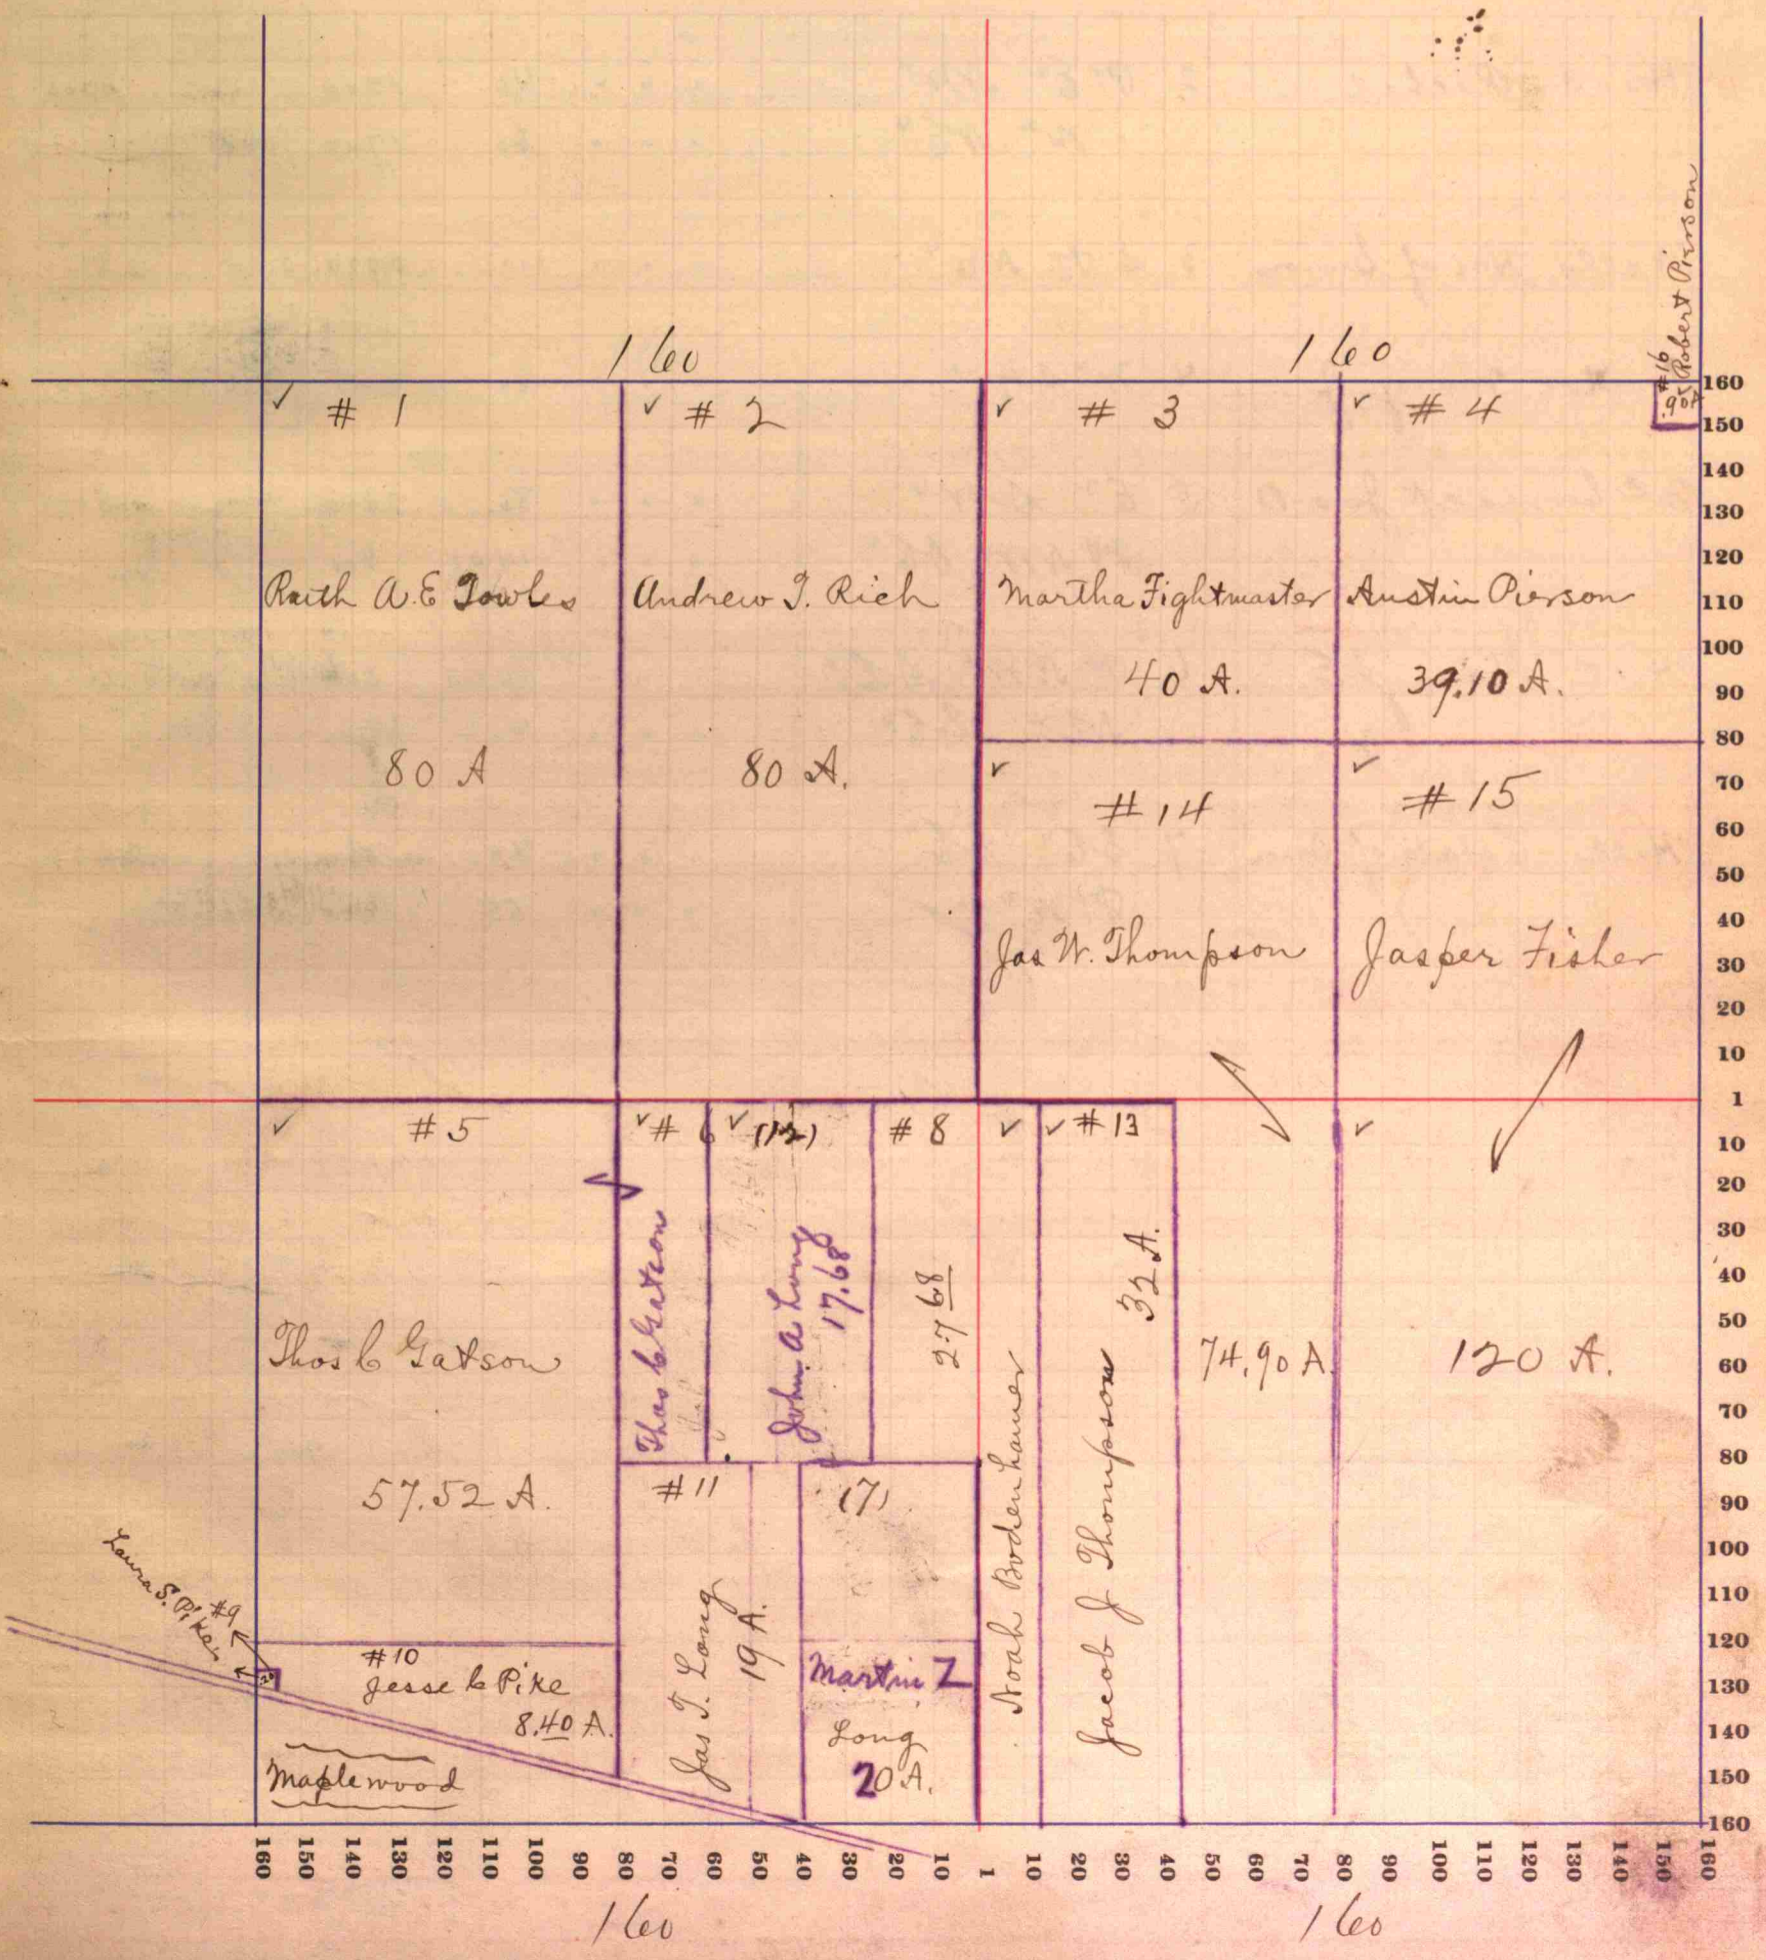 160
160
#16
Robert Pierson
.90A
✓ # 1
✓ # 2
✓ # 3
✓ # 4
Ruth A. E Towles
Andrew T. Rich
Martha Fightmaster
Austin Pierson
40 A.
39.10 A.
80 A
80 A.
✓
✓
#14
#15
Jas W. Thompson
Jasper Fisher
✓ #5
✓ # 6
✓ (12)
# 8
✓
✓ #13
✓
Thos C Gatson
57.52 A.
Thos C Gatson
John. A Long
17.68
27 68
Noah Bodenhamer
Jacob J Thompson
32 A.
74.90 A.
120 A.
#11
Jas T. Long
19 A.
(7)
Martin Z
Long
20 A.
Laura S. Pike
#9
#10
Jesse C Pike
8.40 A.
Maplewood
160
150
140
130
120
110
100
90
80
70
60
50
40
30
20
10
1
10
20
30
40
50
60
70
80
90
100
110
120
130
140
150
160
160 150 140 130 120 110 100 90 80 70 60 50 40 30 20 10 1 10 20 30 40 50 60 70 80 90 100 110 120 130 140 150 160
160
160